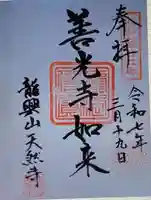 奉拝
令和七年
三月十九日
善光寺如来
龍興山天然寺